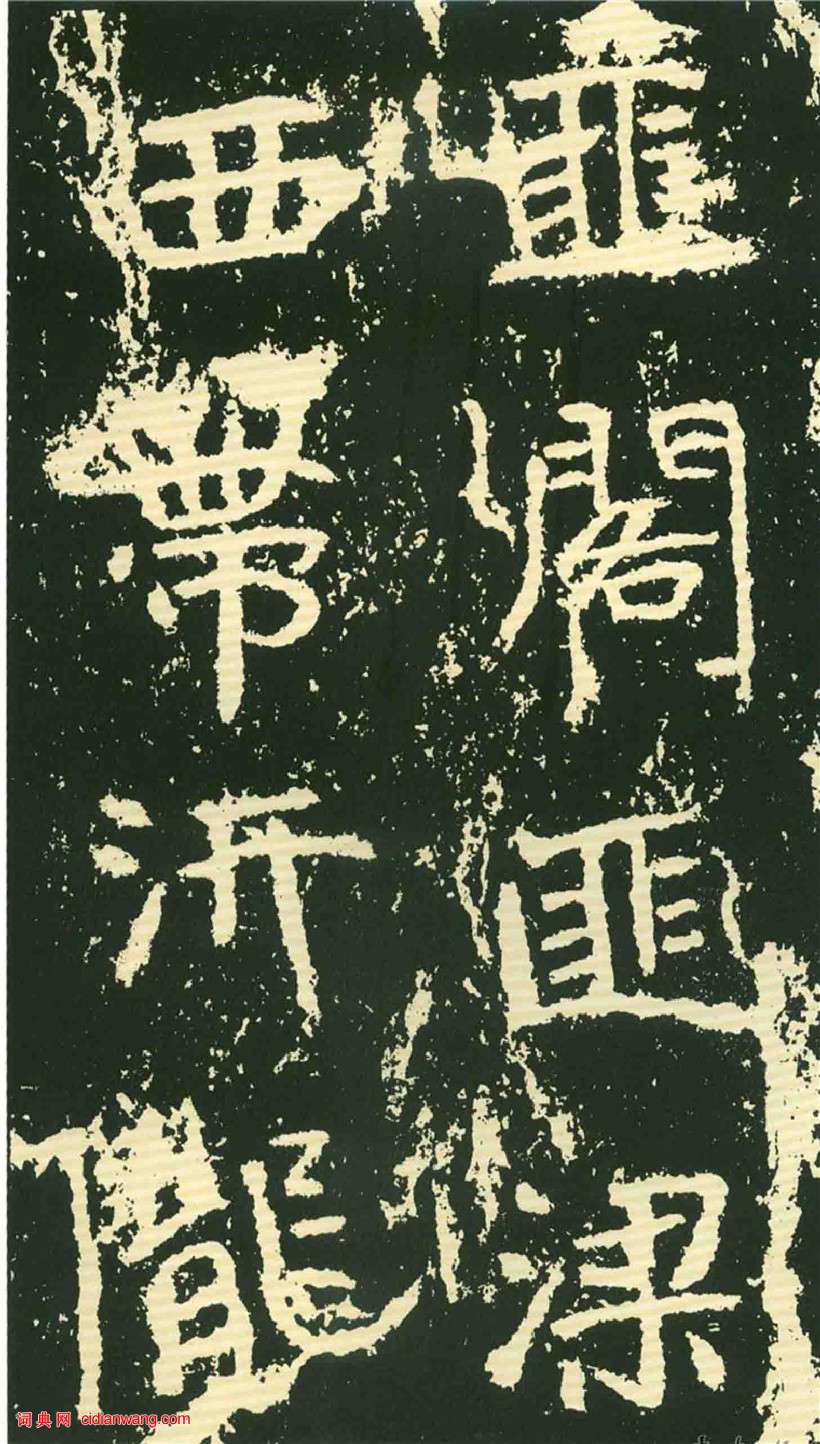 匪閣匪梁
西帶汧隴
词典网 cidianwang.com